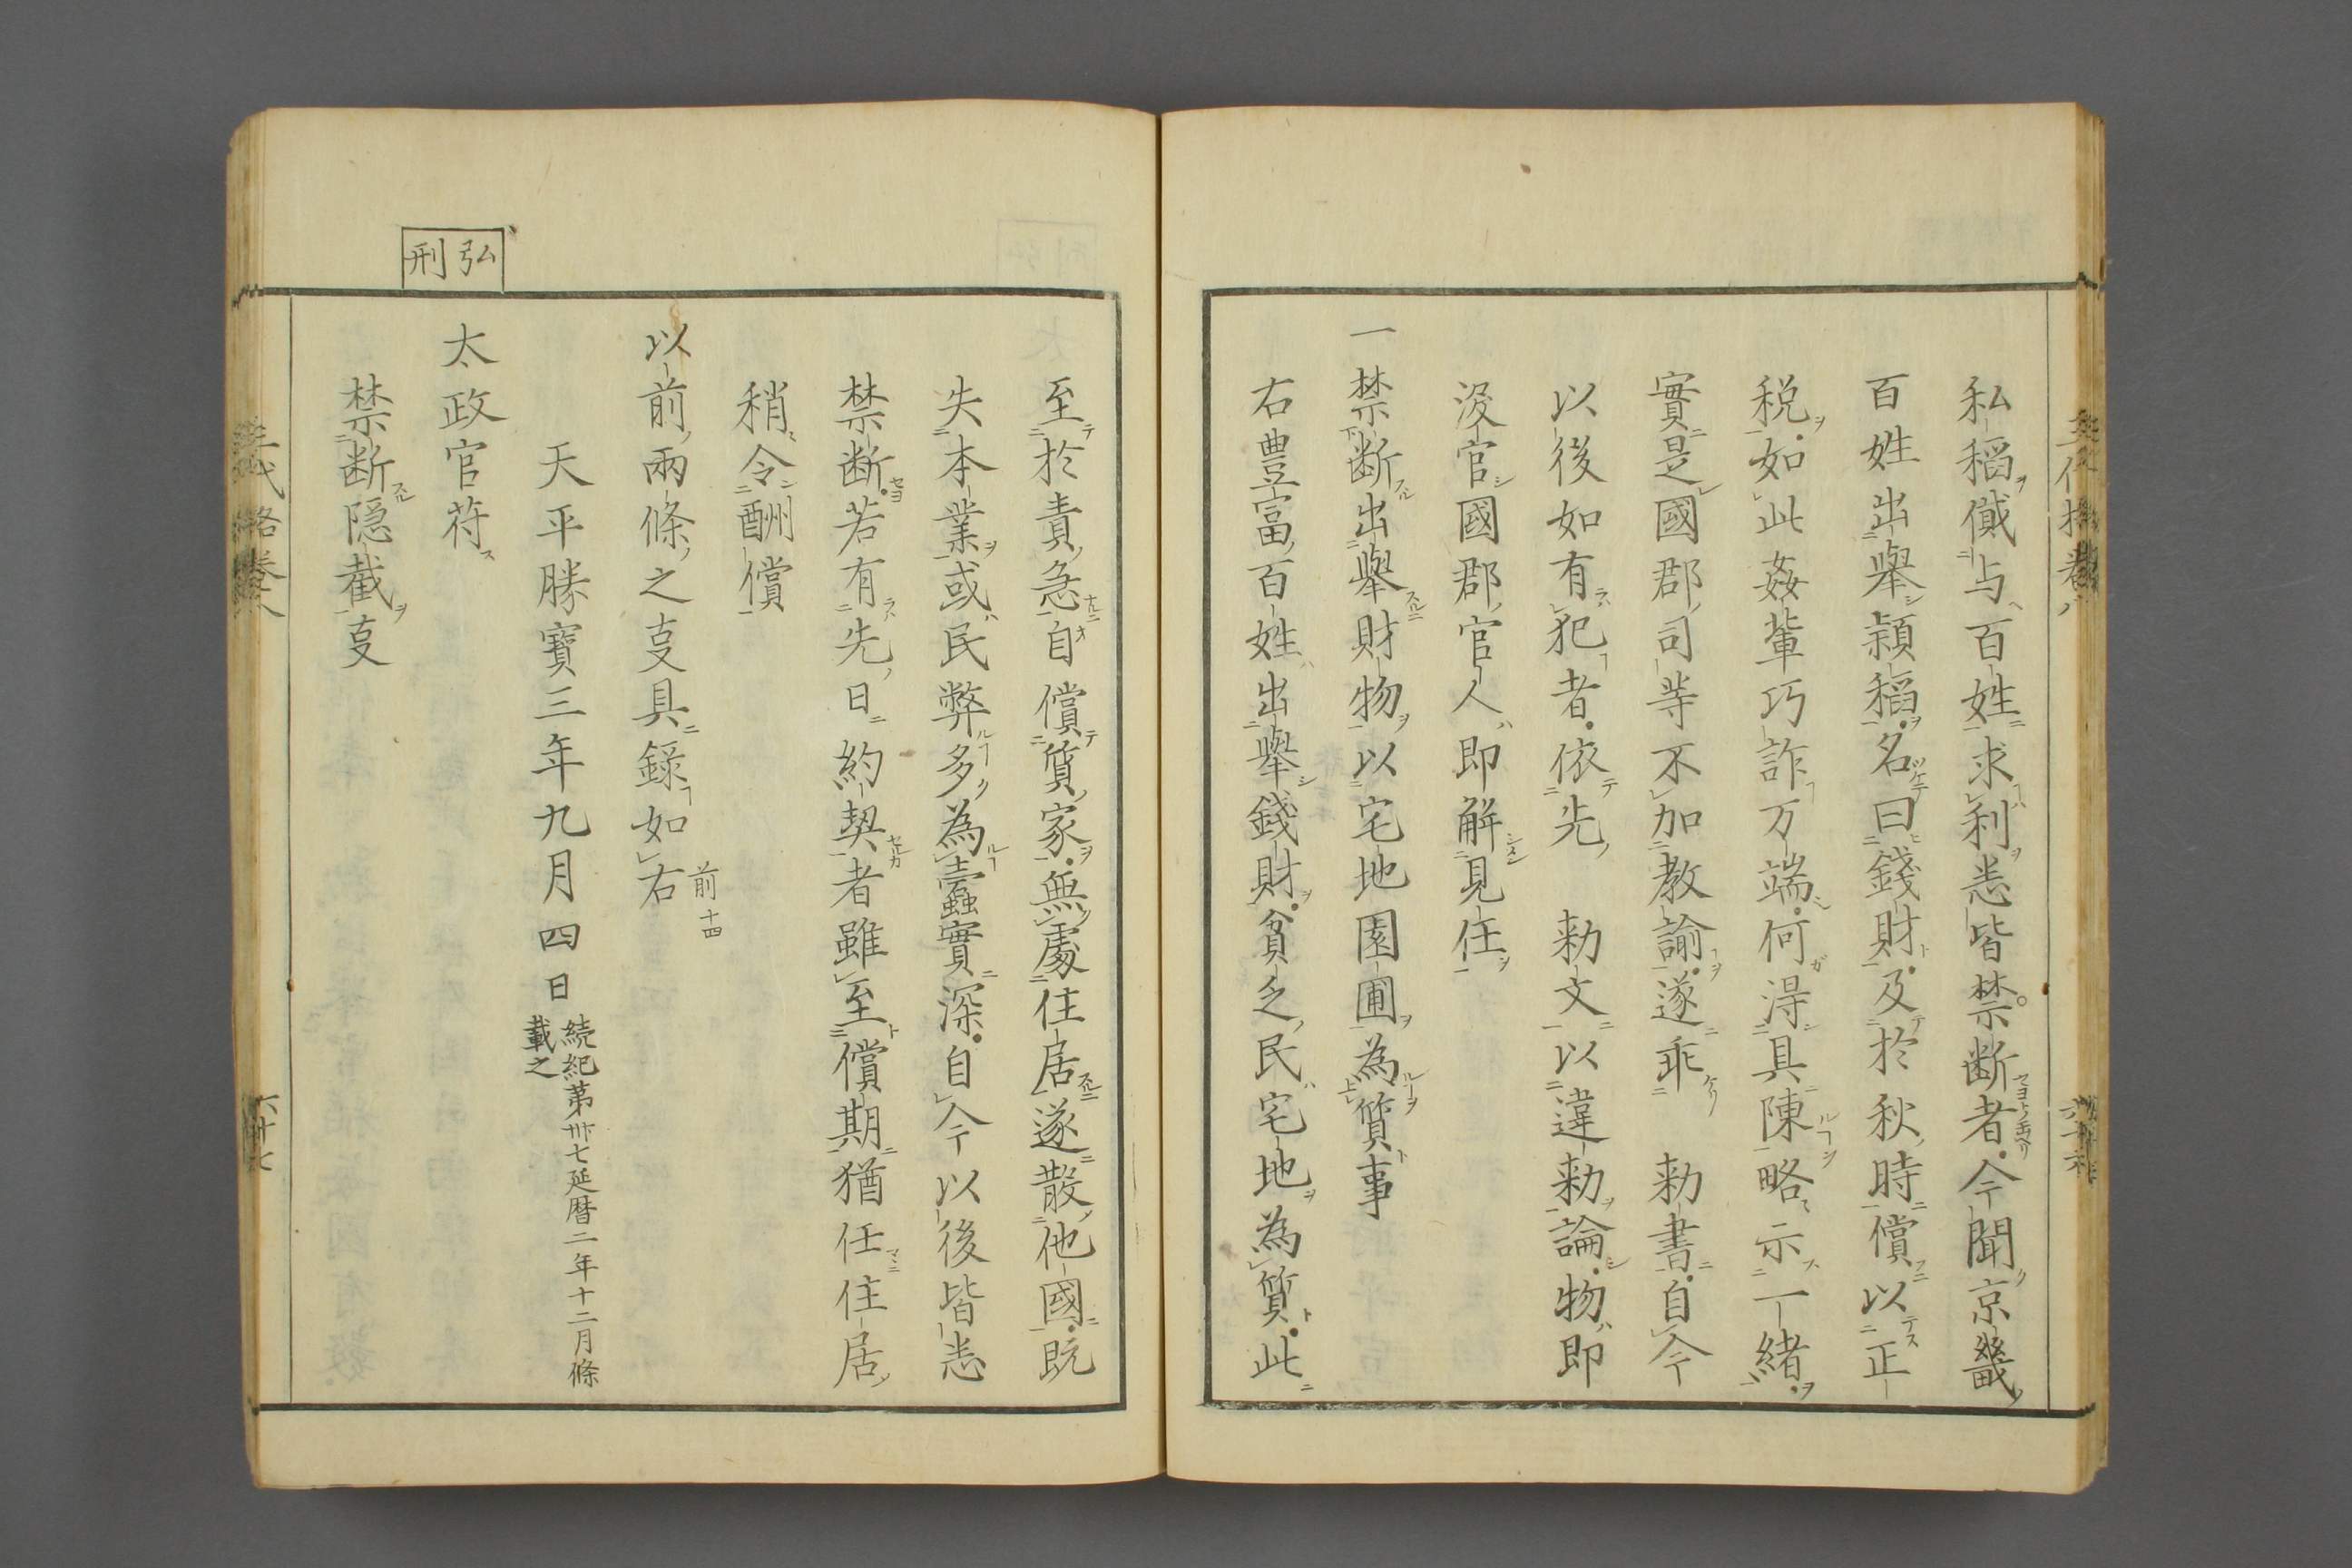 私稻儎与百姓求利悉皆禁断者今聞京畿
百姓出擧頴稻名曰錢財及於秋時償以正
税如此姦輩巧詐万端何淂具陳略示一緒
實是國郡司等不加教諭遂乖　勅書自今
以後如有犯者依先　勅文以違勅論物即
没官國郡官人即解見任
一禁断出擧財物以宅地園圃為質事
右豊富百姓出擧錢財貧乏民宅地為質此
至於責急自償質家無處住居遂散他國既
失本業或民弊多為蠧實深自今以後皆悉
禁断若有先日約契者雖至償期猶任住居
稍令酬償
以前兩條之叓具錄如右
前十四
天平勝寶三年九月四日
続紀第卅七延暦二年十二月條
載之
弘
刑
太政官苻
禁断隠截叓